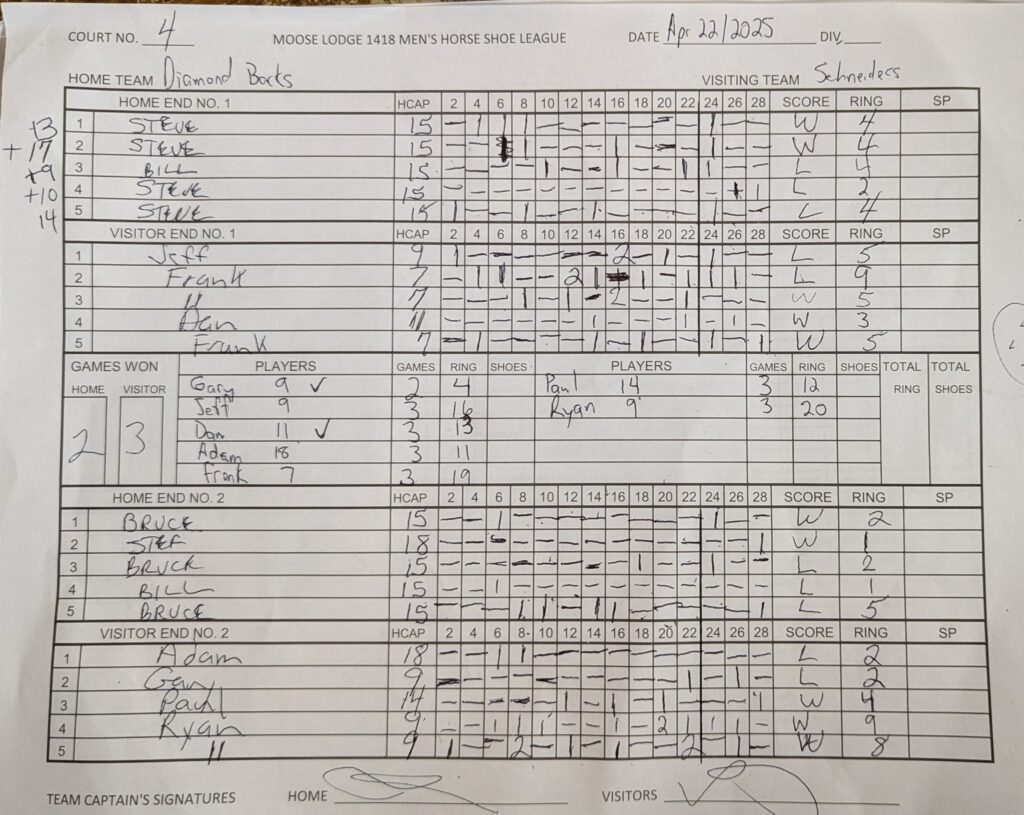 COURT NO. 4 MOOSE LODGE 1418 MEN'S HORSE SHOE LEAGUE DATE Apr 22/2025 DIV.
HOME TEAM Diamond Borks VISITING TEAM Schneiders
HOME END NO. 1 HCAP 2 4 6 8 10 12 14 16 18 20 22 24 26 28 SCORE RING SP
+3 1 STEVE 15 W 4
+17 2 STEVE 15 W 4
+9 3 BILL 15 L 4
+10 4 STEVE 15 L 2
14 5 STEVE 15 L 4
VISITOR END NO. 1 HCAP 2 4 6 8 10 12 14 16 18 20 22 24 26 28 SCORE RING SP
1 Jeff 9 L 5
2 Frank 7 L 9
3 " 7 W 5
4 Dan 11 W 3
5 Frank 7 W 5
GAMES WON PLAYERS GAMES RING SHOES PLAYERS GAMES RING SHOES TOTAL RING TOTAL SHOES
HOME VISITOR
2 3
Gary 9 ✓ 2 4 Paul 14 3 12
Jeff 9 3 16 Ryan 9 3 20
Dan 11 ✓ 3 13
Adam 18 3 11
Frank 7 3 19
HOME END NO. 2 HCAP 2 4 6 8 10 12 14 16 18 20 22 24 26 28 SCORE RING SP
1 BRUCE 15 W 2
2 STEF 18 W 1
3 BRUCE 15 L 2
4 BILL 15 L 1
5 BRUCE 15 L 5
VISITOR END NO. 2 HCAP 2 4 6 8 10 12 14 16 18 20 22 24 26 28 SCORE RING SP
1 Adam 18 L 2
2 Gary 9 L 2
3 Paul 14 W 4
4 Ryan 9 W 9
5 " 9 W 8
TEAM CAPTAIN'S SIGNATURES HOME VISITORS